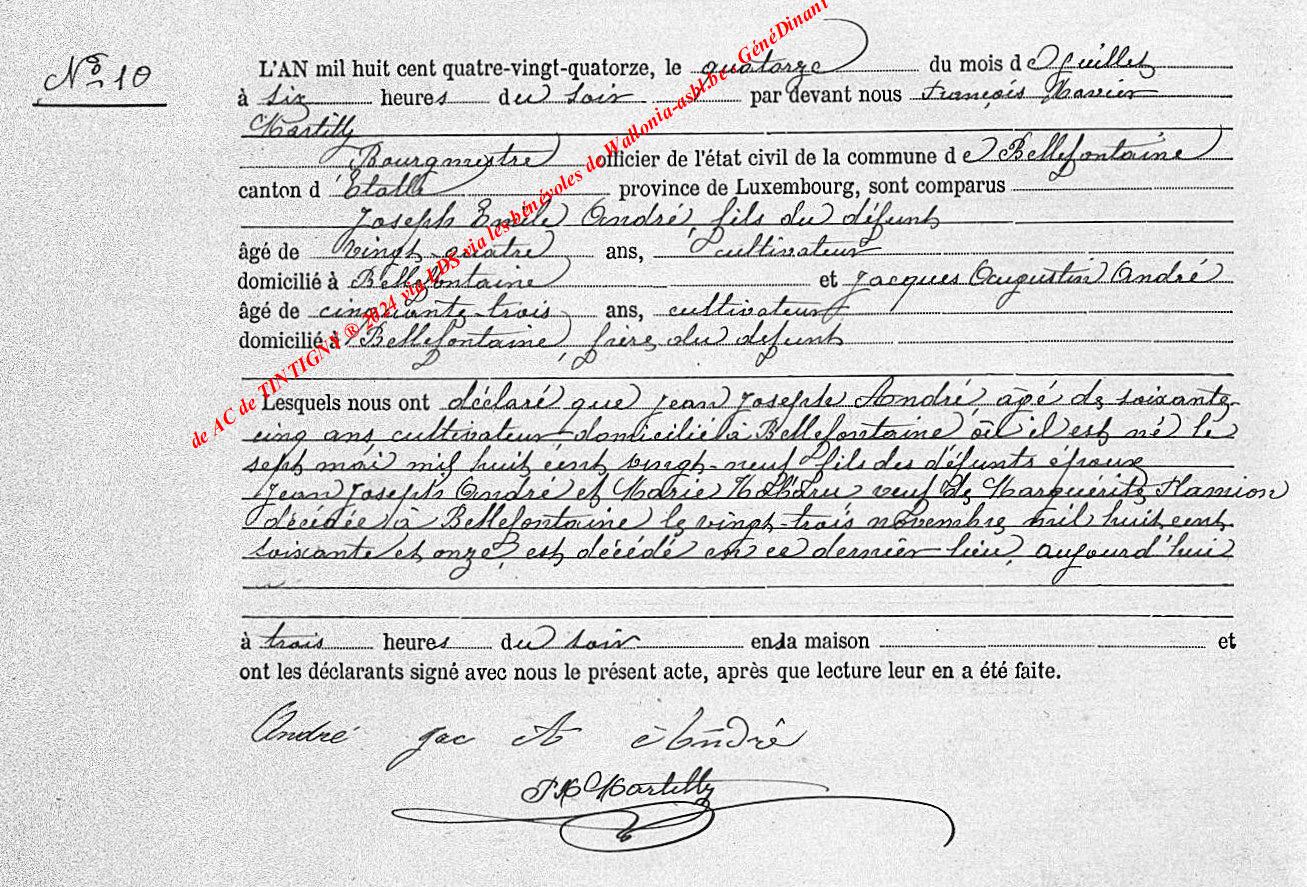 No 10
L'AN mil huit cent quatre-vingt-quatorze, le quatorze du mois de Juillet
à six heures du soir par devant nous François Xavier
Martilly
Bourgmestre officier de l'état civil de la commune de Bellefontaine
canton d'Etalle province de Luxembourg, sont comparus
Joseph Emile André, fils du défunt
âgé de vingt-quatre ans, cultivateur
domicilié à Bellefontaine et Jacques Augustin André
âgé de cinquante-trois ans, cultivateur
domicilié à Bellefontaine, frère du défunt
Lesquels nous ont déclaré que Jean Joseph André, âgé de soixante-
cinq ans, cultivateur, domicilié à Bellefontaine où il est né le
sept mai mil huit cent vingt-neuf, fils des défunts époux
Jean Joseph André et Marie veuf de Marguérite Flamion
décédée à Bellefontaine le vingt-trois novembre mil huit cent
soixante et onze, est décédé en ce dernier lieu, aujourd'hui
à trois heures du soir en sa maison et
ont les déclarants signé avec nous le présent acte, après que lecture leur en a été faite.
André Jac A André
F X Martilly
de AC de TINTIGNY ® 2024 via LDS via les bénévoles de Wallonia-asbl.be - GénéDinant